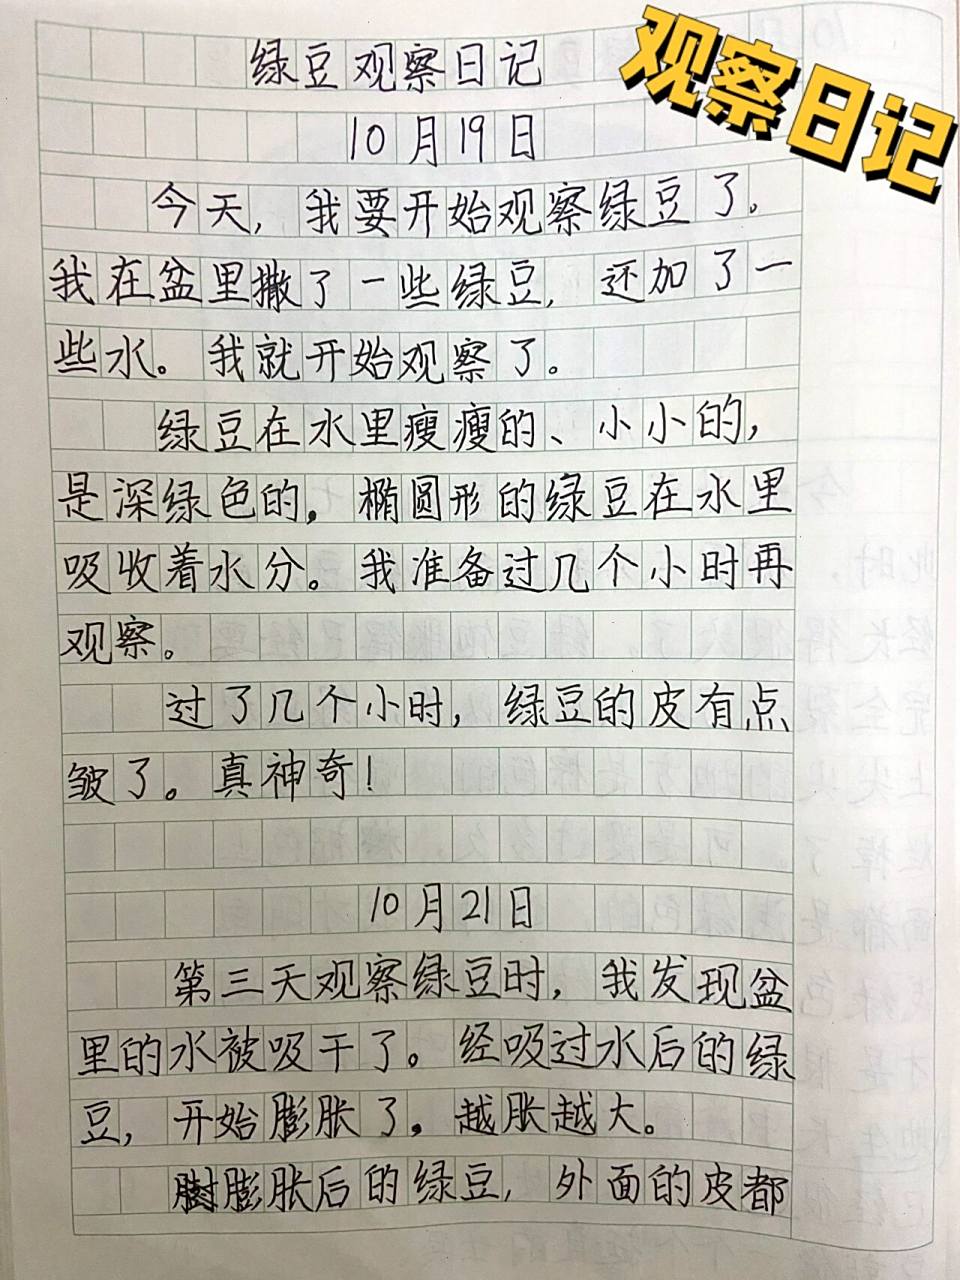 观察日记
绿豆观察日记
10月19日
今天，我要开始观察绿豆了。
我在盆里撒了一些绿豆，还加了一
些水。我就开始观察了。
绿豆在水里瘦瘦的、小小的，
是深绿色的。椭圆形的绿豆在水里
吸收着水分。我准备过几个小时再
观察。
过了几个小时，绿豆的皮有点
皱了。真神奇！
10月21日
第三天观察绿豆时，我发现盆
里的水被吸干了。经吸过水后的绿
豆，开始膨胀了。越胀越大。
膨胀后的绿豆，外面的皮都